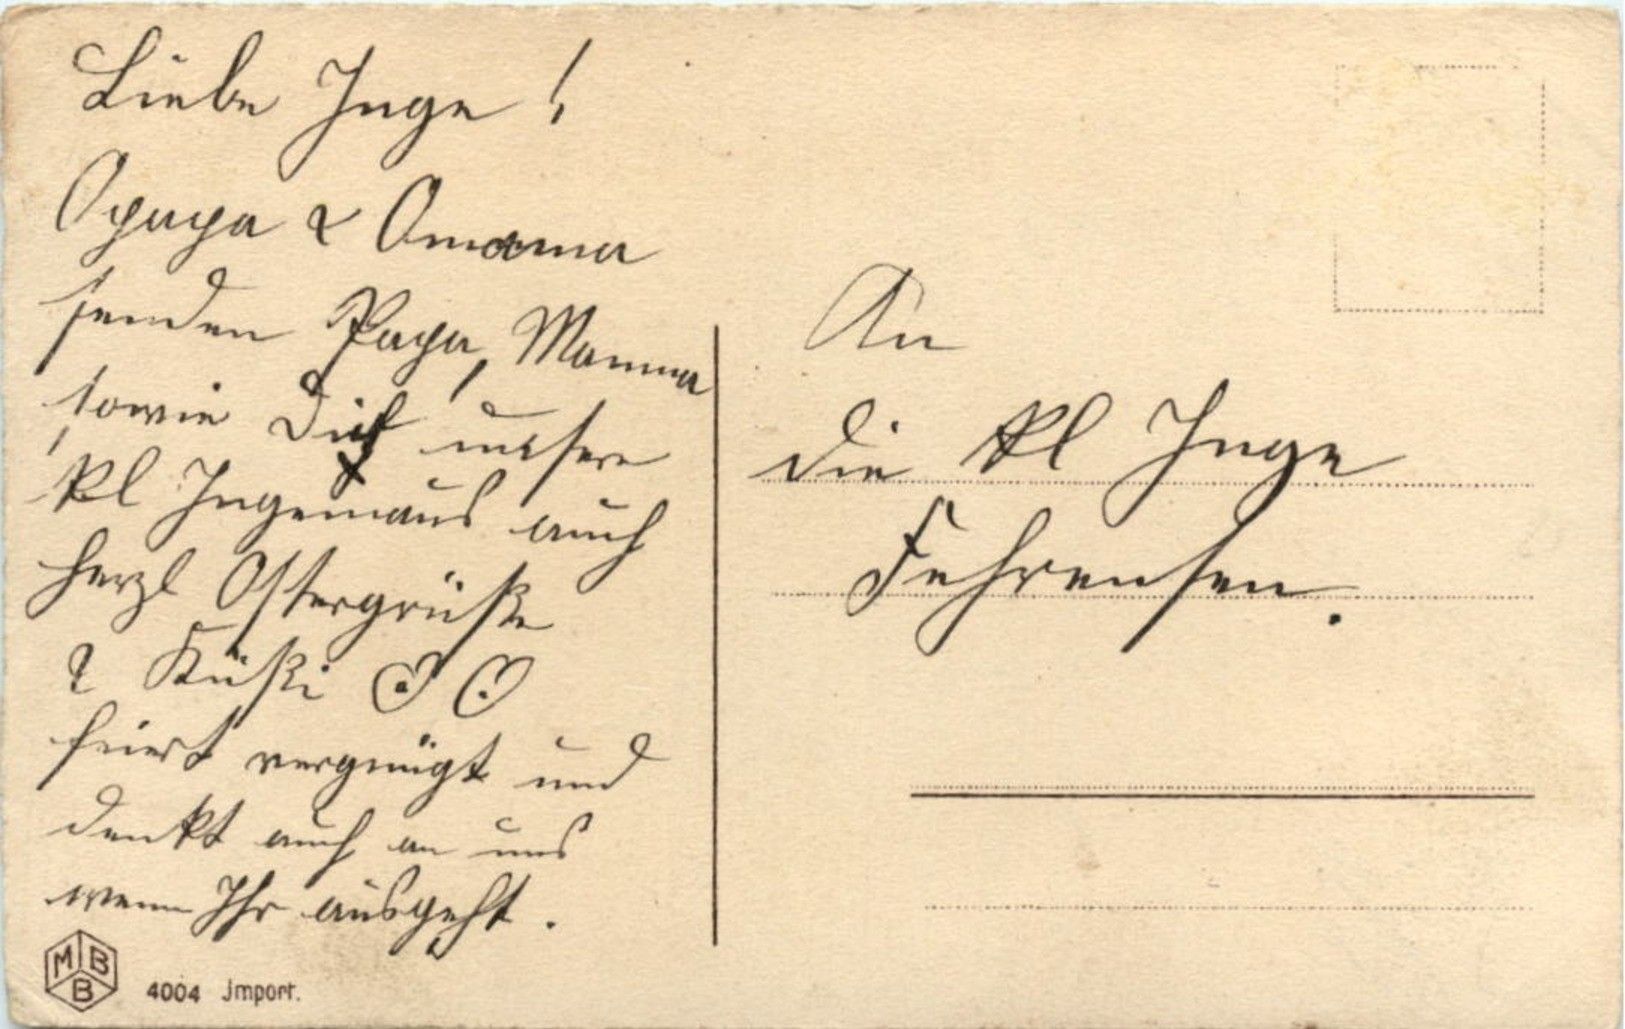 Liebe Inge!
Opapa & Omama
senden Papa, Mamma
sowie Dich unsere
kl Ingemaus auch
herzl Ostergrüße
& Küßi
feiert vergnügt und
denkt auch an uns
wenn Ihr ausgeht.
An
die kl Inge
Fehrensen.
MBB
4004 Jmport.